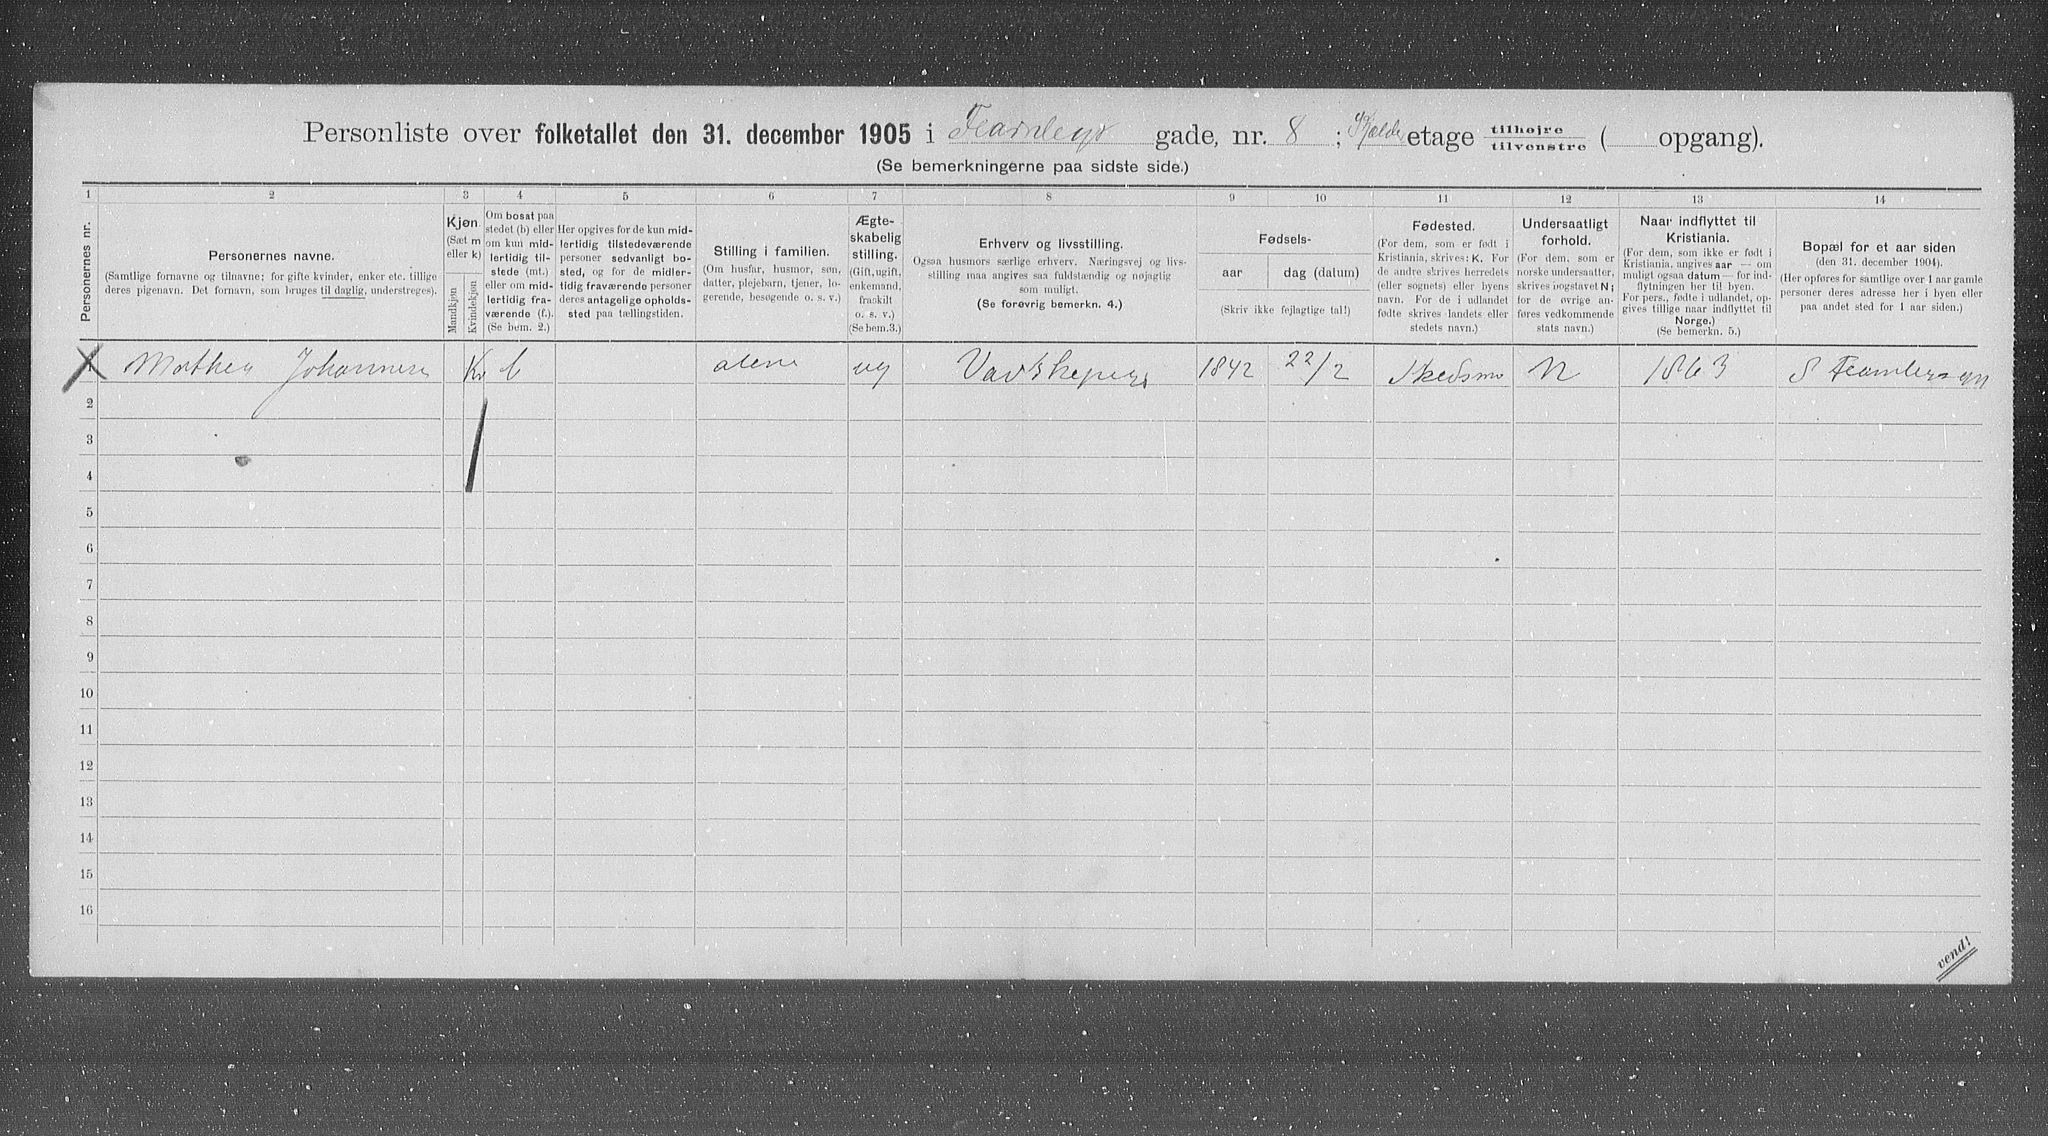 Personliste over folketallet den 31. december 1905 i Fearnleys gade, nr. 8 ; Kjelder etage tilhøjre tilvenstre ( opgang).
(Se bemerkningerne paa sidste side.)
1 2 3 4 5 6 7 8 9 10 11 12 13 14
Personernes nr.
Personernes navne.
(Samtlige fornavne og tilnavne; for gifte kvinder, enker etc. tillige
deres pigenavn. Det fornavn, som bruges til daglig, understreges).
Kjøn.
(Sæt m
eller k)
Mandkjøn
Kvindekjøn
Om bosat paa
stedet (b) eller
om kun mid-
lertidig til-
stede (mt.)
eller om mid-
lertidig fra-
værende (f.).
(Se bem. 2.)
Her opgives for de kun mid-
lertidig tilstedeværende
personer sedvanligt bo-
sted, og for de midler-
tidig fraværende personer
deres antagelige opholds-
sted paa tællingstiden.
Stilling i familien.
(Om husfar, husmor, søn,
datter, plejebarn, tjener, lo-
gerende, besøgende o. s. v.)
Ægte-
skabelig
stilling.
(Gift, ugift,
enkemand,
fraskilt
o. s. v.)
(Se bem.3.)
Erhverv og livsstilling.
Ogsaa husmors særlige erhverv. Næringsvej og livs-
stilling maa angives saa fuldstændig og nøjagtig
som muligt.
(Se forøvrig bemerkn. 4.)
Fødsels-
aar
dag (datum)
(Skriv ikke fejlagtige tal!)
Fødested.
(For dem, som er født i
Kristiania, skrives: K. For
de andre skrives herredets
(eller sognets) eller byens
navn. For de i udlandet
fødte skrives landets eller
stedets navn.)
Undersaatligt
forhold.
(For dem, som er
norske undersaatter,
skrives bogstavet N;
for de øvrige an-
føres vedkommende
stats navn.)
Naar indflyttet til
Kristiania.
(For dem, som ikke er født i
Kristiania, angives aar — om
muligt ogsaa datum — for ind-
flytningen her til byen.
For pers., fødte i udlandet, op-
gives tillige naar indflyttet til
Norge.)
(Se bemerkn. 5.)
Bopæl for et aar siden
(den 31. december 1904).
(Her opføres for samtlige over 1 aar gamle
personer deres adresse her i byen eller
paa andet sted for 1 aar siden.)
1 Mathea Johannesen K b alene ug Vaskepige 1842 22/2 Skedsmo N 1863 8 Fearnleys gd
2
3
4
5
6
7
8
9
10
11
12
13
14
15
16
vend!